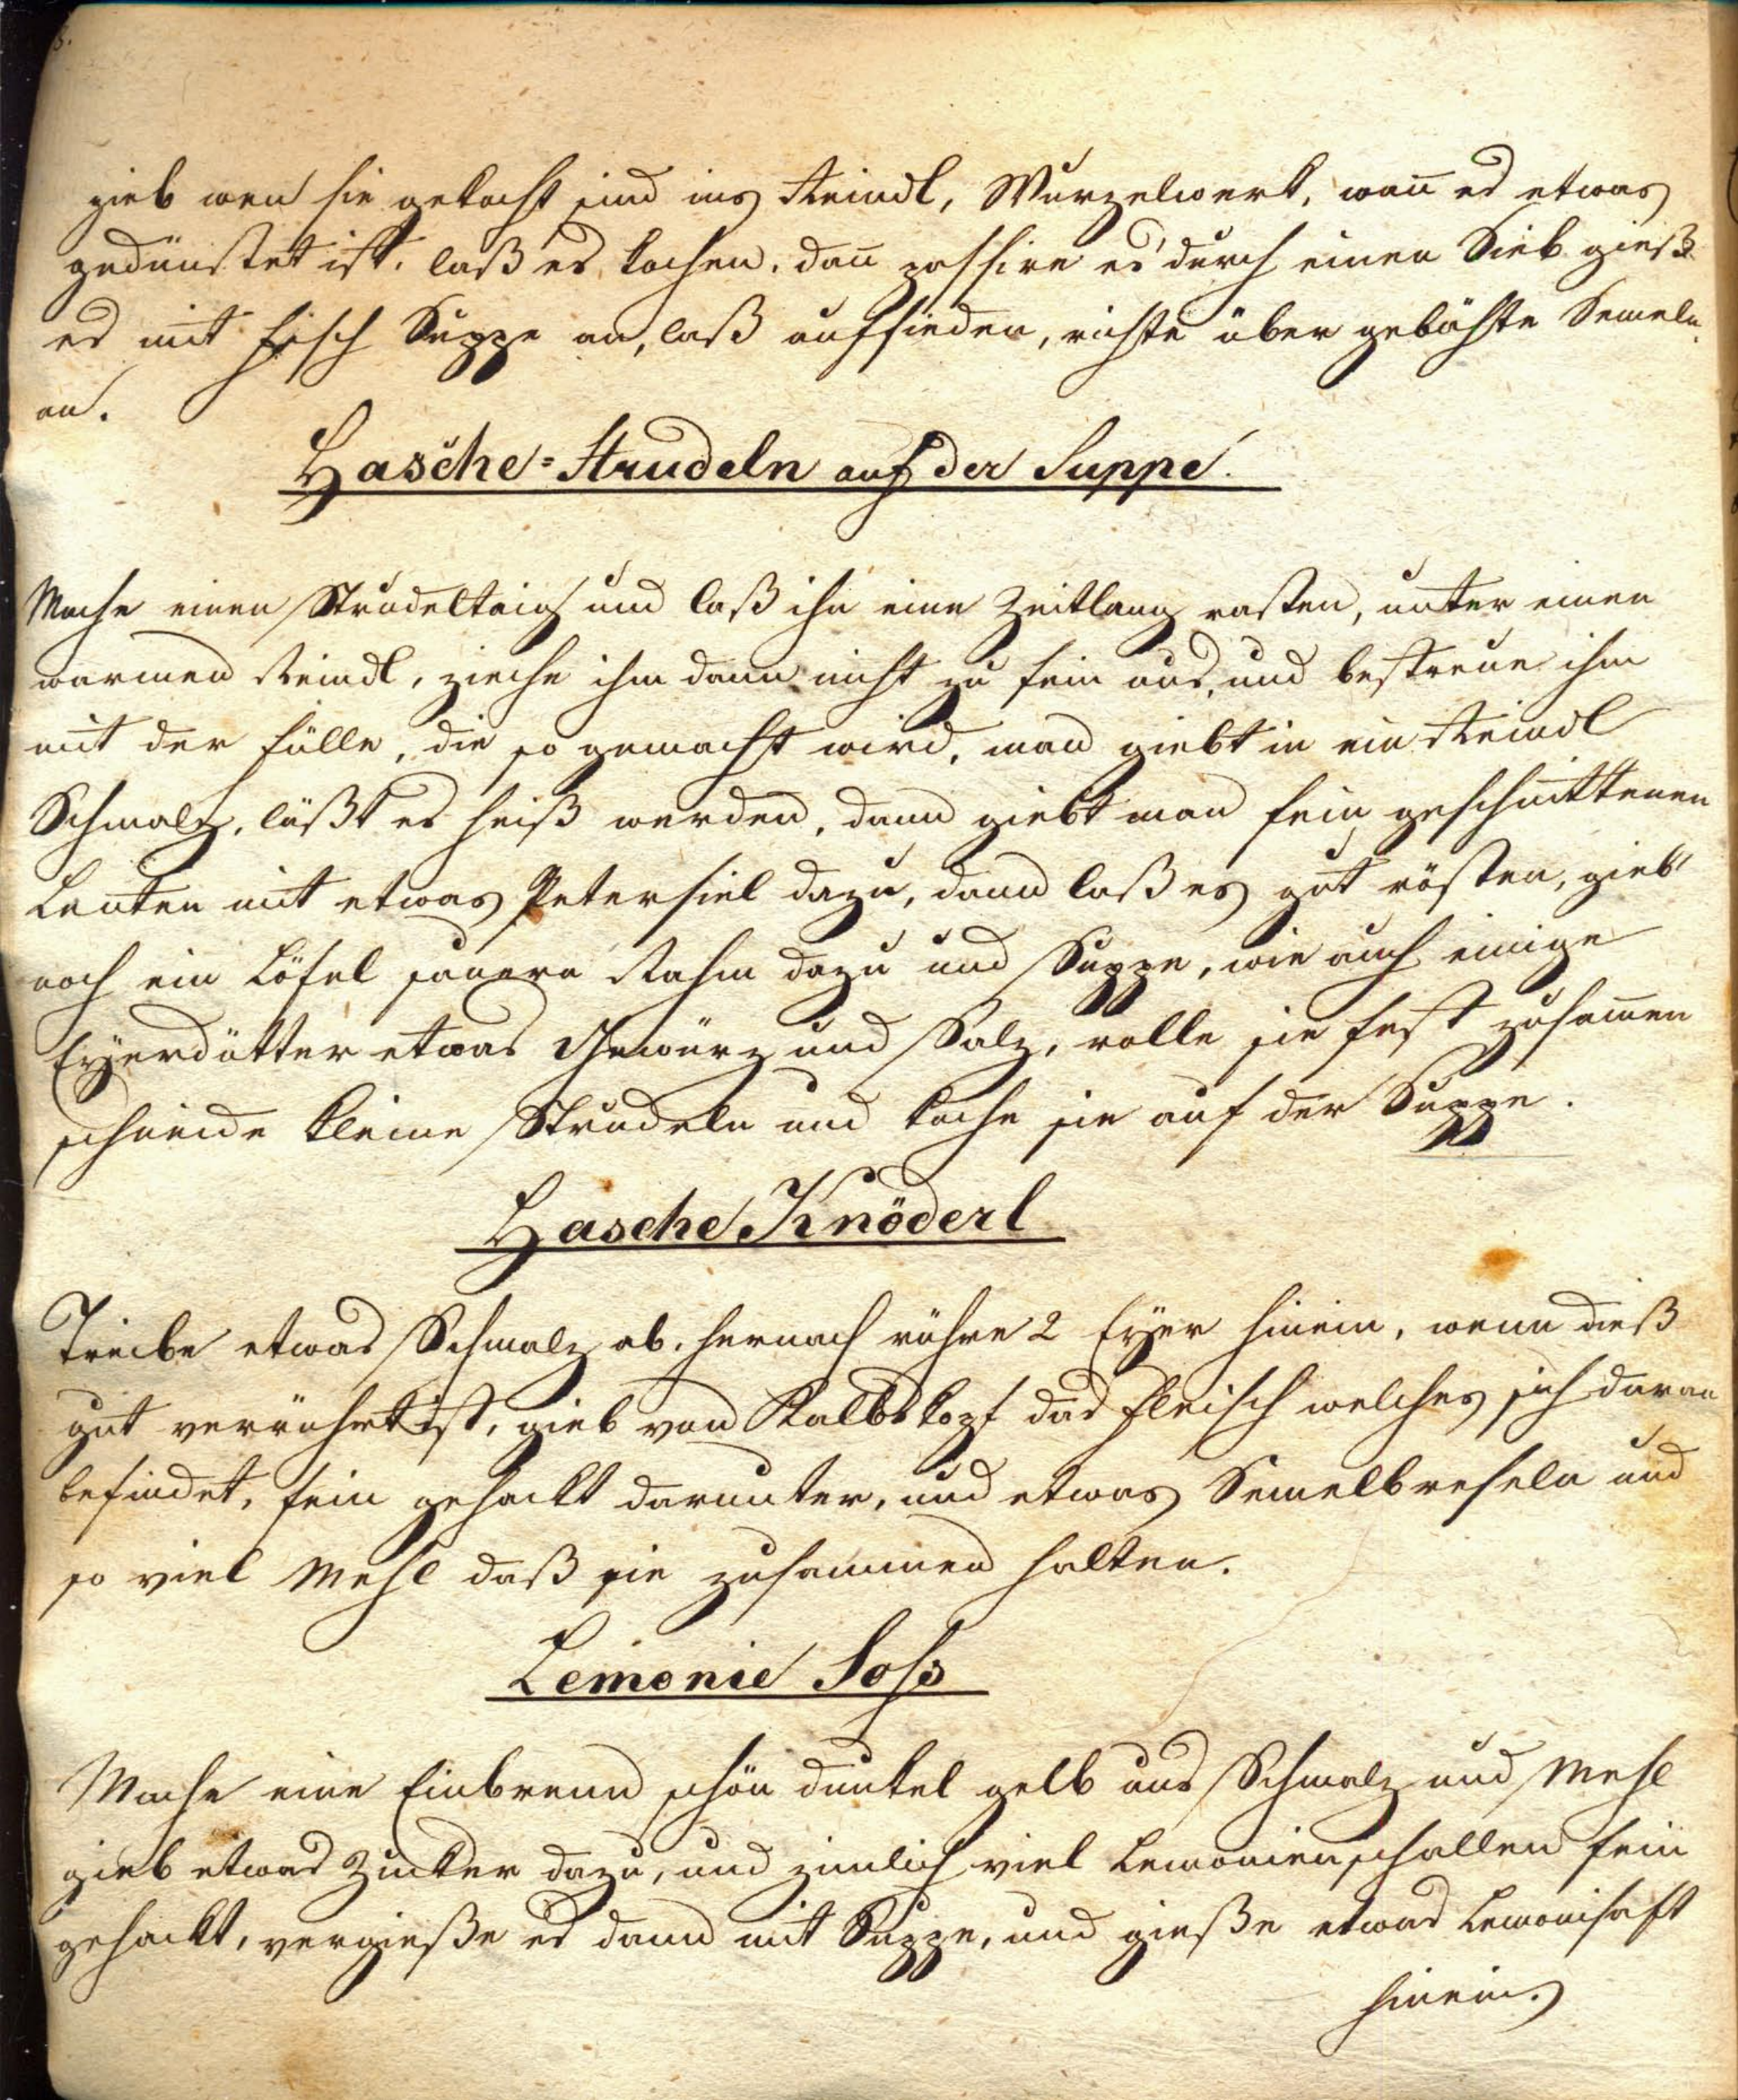 gieb wen sie gekocht sind ins Reindl, Wurzelwerk, wan̄ es etwas
gedünstet ist. laß es kochen. dan̄ passire es durch einen Sieb gieß
es mit Fisch Suppe an, laß aufsieden, richte über gebähte Semeln
an.
Hasche=Strudeln auf der Suppe.
Mache einen Strudeltaig und laß ihn eine Zeitlang rasten, unter einen
warmen Reindl, zieche ihm dann nicht zu fein aus, und bestreue ihm
mit der Fülle, die so gemacht wird, man giebt in ein Reindl
Schmalz, läßt es heiß werden, dann giebt man fein geschnittenen
mit etwas Petersiel dazu, dann laß es gut rösten, gieb
noch ein Löfel sauern Rahm dazu und Suppe, wie auch einige
Eyerdötter etwas Gewürz und Salz, rolle sie fest zusam̄en
schneide kleine Strudeln und koche sie auf der Suppe.
Hasche Knöderl
Treibe etwas Schmalz ab. hernach rühre 2 Eyer hinein, wenn dieß
gut verrührt ist, gieb von Kalbskopf das Fleisch welches sich daran
befindet, fein gehackt darunter, und etwas Semelbreseln und
so viel Mehl daß sie zusammen halten.
Lemonie Soß
Mache eine Einbrenn schön dunkel gelb aus Schmalz und Mehl
gieb etwas Zucker dazu, und zimlich viel Lemonienschallen fein
gehackt, vergieße es dann mit Suppe, und gieße etwas Lemonisaft
hinein.